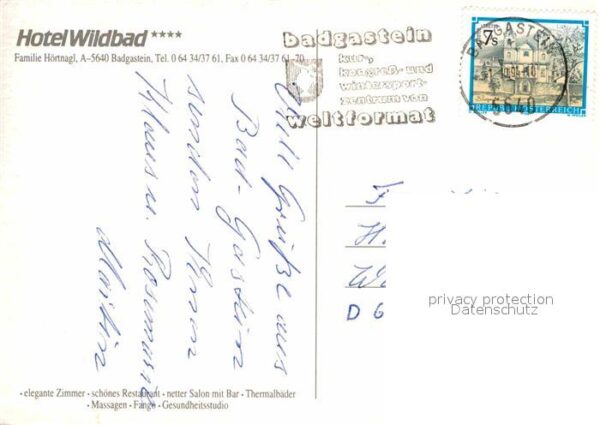 Hotel Wildbad ****
Familie Hörtnagl, A–5640 Badgastein, Tel. 0 64 34/37 61, Fax 0 64 34/37 61-70
badgastein
kur-,
kongreß- und
wintersport-
zentrum von
weltformat
7 S
BADGASTEIN
5640
REPUBLIK ÖSTERREICH
Viele Grüße aus
Bad-Gastein
senden Ihnen
Klaus u. Rosemarie
Martin
F
H.
W
D 6
privacy protection
Datenschutz
- elegante Zimmer - schönes Restaurant - netter Salon mit Bar - Thermalbäder
- Massagen - Fango - Gesundheitsstudio